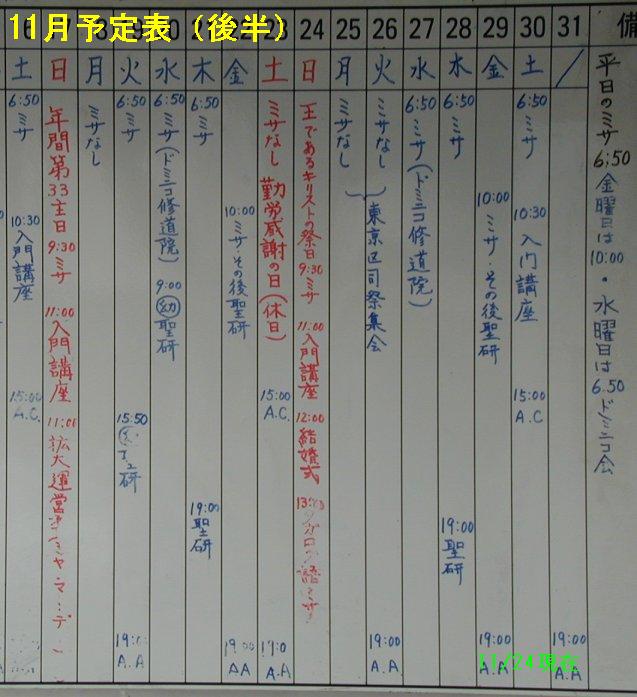 11月予定表（後半）
24 25 26 27 28 29 30 31 備
土 日 月 火 水 木 金 土 日 月 火 水 木 金 土
6:50 ミサ
10:30 入門講座
15:00 A.C.
年間第33主日 9:30 ミサ
11:00 入門講座
11:00 拡大運営
ミサなし
6:50 ミサ
19:0
A.A
6:50 ミサ(ドミニコ修道院)
9:00 幼 聖研
15:50
研
6:50 ミサ
19:00 聖研
10:00 ミサ その後聖研
19:00
AA
ミサなし 勤労感謝の日(休日)
15:00
A.C.
A.A
王であるキリストの祭日 9:30 ミサ
11:00 入門講座
12:00 結婚式
ミサなし
ミサなし
東京区司祭集会
19:00
A.A
6:50 ミサ(ドミニコ修道院)
6:50 ミサ
19:00 聖研
10:00 ミサ その後聖研
19:00
A.A
6:50 ミサ
10:30 入門講座
15:00
A.C
19:00
A.A
平日のミサ 6:50 金曜日は 10:00・水曜日は 6.50 ドミニコ会
11/24現在